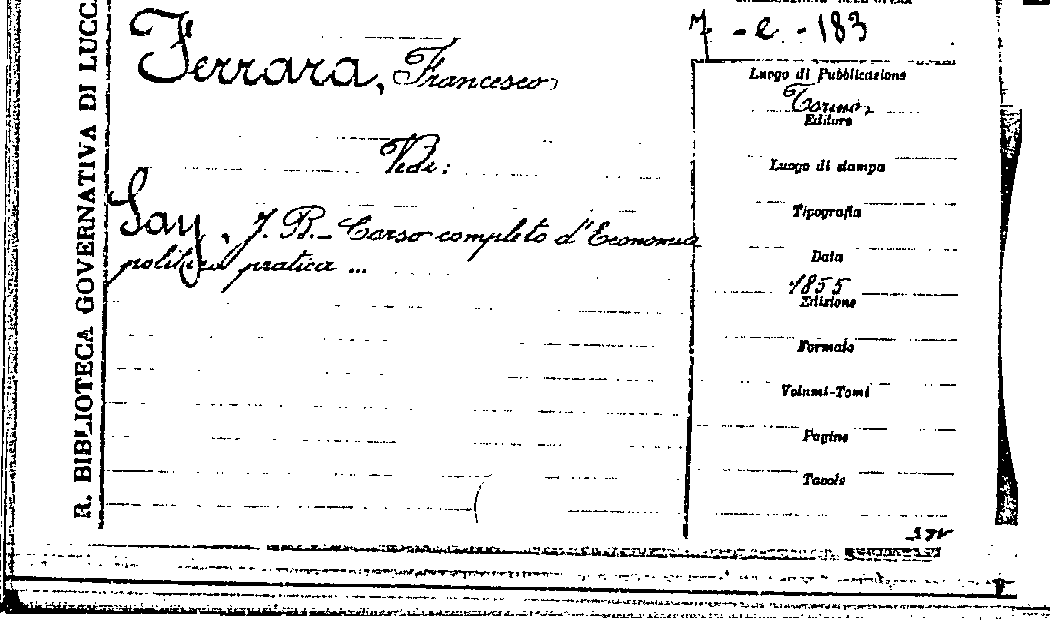 R. BIBLIOTECA GOVERNATIVA DI LUCCA
Ferrara, Francesco
Vedi:
Say, J. B. - Corso completo d'Economia
politica pratica ...
- e. - 183
Luogo di Pubblicazione
Torino,
Editore
Luogo di stampa
Tipografia
Data
1855
Edizione
Formato
Volumi-Tomi
Pagine
Tavole